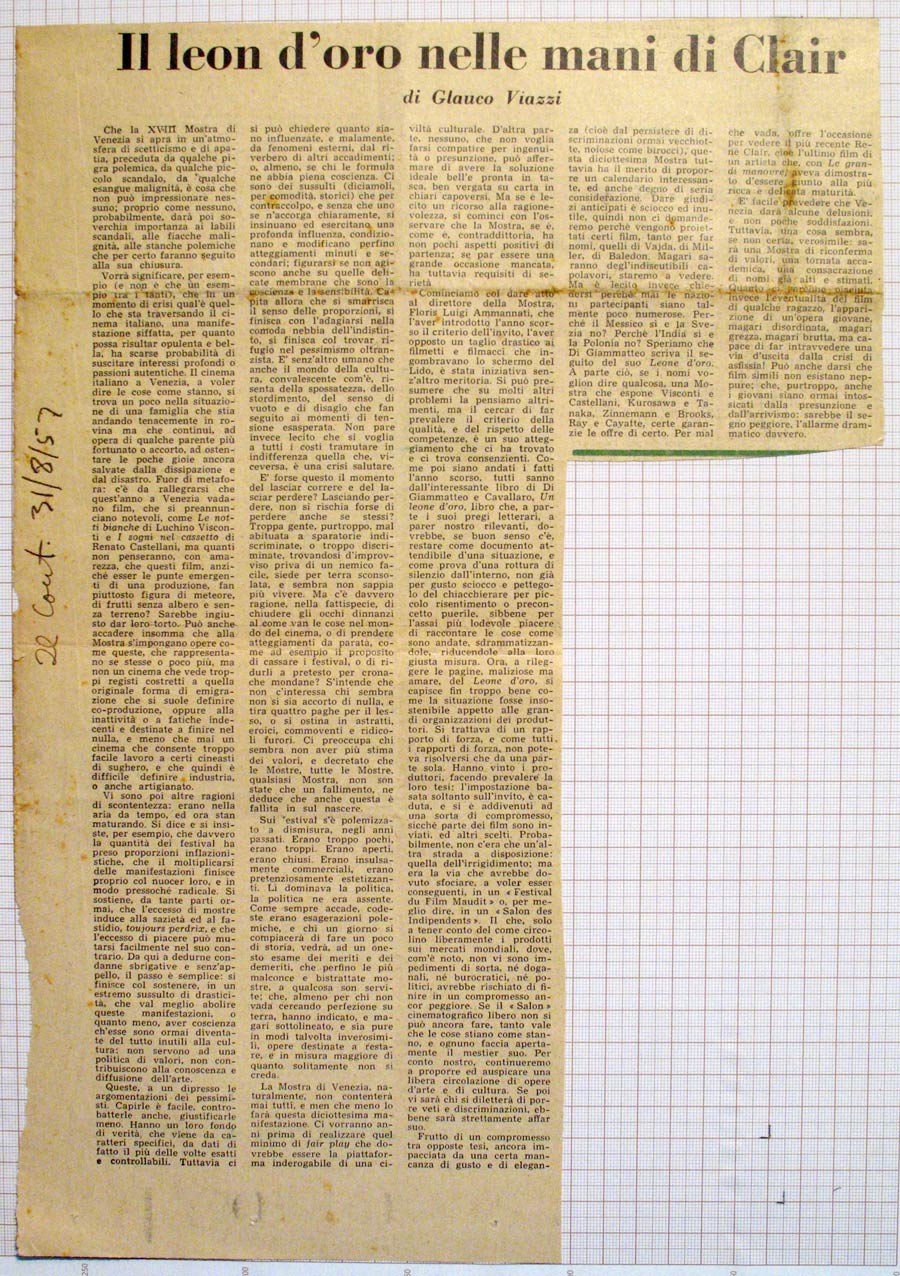 Il leon d'oro nelle mani di Clair
di Glauco Viazzi
Che la XVIII Mostra di
Venezia si apra in un'atmo-
sfera di scetticismo e di apa-
tia, preceduta da qualche pi-
gra polemica, da qualche pic-
colo scandalo, da qualche
esangue malignità, è cosa che
non può impressionare nes-
suno; proprio come nessuno,
probabilmente, darà poi so-
verchia importanza ai labili
scandali, alle fiacche mali-
gnità, alle stanche polemiche
che per certo faranno seguito
alla sua chiusura.
Vorrà significare, per esem-
pio (e non è che un esem-
pio tra i tanti), che in un
momento di crisi qual'è quel-
lo che sta traversando il ci-
nema italiano, una manife-
stazione siffatta, per quanto
possa risultar opulenta e bel-
la, ha scarse probabilità di
suscitare interessi profondi o
passioni autentiche. Il cinema
italiano a Venezia, a voler
dire le cose come stanno, si
trova un poco nella situazio-
ne di una famiglia che stia
andando tenacemente in ro-
vina ma che continui, ad
opera di qualche parente più
fortunato o accorto, ad osten-
tare le poche gioie ancora
salvate dalla dissipazione e
dal disastro. Fuor di metafo-
ra: c'è da rallegrarsi che
quest'anno a Venezia vada-
no film, che si preannun-
ciano notevoli, come Le not-
ti bianche di Luchino Viscon-
ti e I sogni nel cassetto di
Renato Castellani, ma quanti
non penseranno, con ama-
rezza, che questi film, anzi-
ché esser le punte emergen-
ti di una produzione, fan
piuttosto figura di meteore,
di frutti senza albero e sen-
za terreno? Sarebbe ingiu-
sto dar loro torto. Può anche
accadere insomma che alla
Mostra s'impongano opere co-
me queste, che rappresenta-
no se stesse o poco più, ma
non un cinema che vede trop-
pi registi costretti a quella
originale forma di emigra-
zione che si suole definire
co-produzione, oppure alla
inattività o a fatiche inde-
centi e destinate a finire nel
nulla, e meno che mai un
cinema che consente troppo
facile lavoro a certi cineasti
di sughero, e che quindi è
difficile definire industria,
o anche artigianato.
Vi sono poi altre ragioni
di scontentezza: erano nella
aria da tempo, ed ora stan
maturando. Si dice e si insi-
ste, per esempio, che davvero
la quantità dei festival ha
preso proporzioni inflazioni-
stiche, che il moltiplicarsi
delle manifestazioni finisce
proprio col nuocer loro, e in
modo pressoché radicale. Si
sostiene, da tante parti or-
mai, che l'eccesso di mostre
induce alla sazietà ed al fa-
stidio, toujours perdrix, e che
l'eccesso di piacere può mu-
tarsi facilmente nel suo con-
trario. Da qui a dedurne con-
danne sbrigative e senz'ap-
pello, il passo è semplice: si
finisce col sostenere, in un
estremo sussulto di drastici-
tà, che val meglio abolire
queste manifestazioni, o
quanto meno, aver coscienza
ch'esse sono ormai diventa-
te del tutto inutili alla cul-
tura: non servono ad una
politica di valori, non con-
tribuiscono alla conoscenza e
diffusione dell'arte.
Queste, a un dipresso le
argomentazioni dei pessimi-
sti. Capirle è facile, contro-
batterle anche, giustificarle
meno. Hanno un loro fondo
di verità, che viene da ca-
ratteri specifici, da dati di
fatto il più delle volte esatti
e controllabili. Tuttavia ci
si può chiedere quanto sia-
no influenzate, e malamente,
da fenomeni esterni, dal ri-
verbero di altri accadimenti;
o, almeno, se chi le formula
ne abbia piena coscienza. Ci
sono dei sussulti (diciamoli,
per comodità, storici) che per
contraccolpo, e senza che uno
se n'accorga chiaramente, si
insinuano ed esercitano una
profonda influenza, condizio-
nano e modificano perfino
atteggiamenti minuti e se-
condari; figurarsi se non agi-
scono anche su quelle deli-
cate membrane che sono la
coscienza e la sensibilità. Ca-
pita allora che si smarrisca
il senso delle proporzioni, si
finisca con l'adagiarsi nella
comoda nebbia dell'indistin-
to, si finisca col trovar ri-
fugio nel pessimismo oltran-
zista. E' senz'altro umano che
anche il mondo della cultu-
ra, convalescente com'è, ri-
senta della spossatezza, dello
stordimento, del senso di
vuoto e di disagio che fan
seguito ai momenti di ten-
sione esasperata. Non pare
invece lecito che si voglia
a tutti i costi tramutare in
indifferenza quella che, vi-
ceversa, è una crisi salutare.
E' forse questo il momento
del lasciar correre e del la-
sciar perdere? Lasciando per-
dere, non si rischia forse di
perdere anche se stessi?
Troppa gente, purtroppo, mal
abituata a sparatorie indi-
scriminate, o troppo discri-
minate, trovandosi d'improv-
viso priva di un nemico fa-
cile, siede per terra sconso-
lata, e sembra non sappia
più vivere. Ma c'è davvero
ragione, nella fattispecie, di
chiudere gli occhi dinnanzi
al come van le cose nel mon-
do del cinema, o di prendere
atteggiamenti da parata, co-
me ad esempio il proposito
di cassare i festival, o di ri-
durli a pretesto per crona-
che mondane? S'intende che
non c'interessa chi sembra
non si sia accorto di nulla, e
tira quattro paghe per il les-
so, o si ostina in astratti,
eroici, commoventi e ridico-
li furori. Ci preoccupa chi
sembra non aver più stima
dei valori, e decretato che
le Mostre, tutte le Mostre,
qualsiasi Mostra, non son
state che un fallimento, ne
deduce che anche questa è
fallita in sul nascere.
Sui festival s'è polemizza-
to a dismisura, negli anni
passati. Erano troppo pochi,
erano troppi. Erano aperti,
erano chiusi. Erano insulsa-
mente commerciali, erano
pretenziosamente estetizzan-
ti. Li dominava la politica,
la politica ne era assente.
Come sempre accade, code-
ste erano esagerazioni pole-
miche, e chi un giorno si
compiacerà di fare un poco
di storia, vedrà, ad un one-
sto esame dei meriti e dei
demeriti, che perfino le più
malconce e bistrattate mo-
stre, a qualcosa son servi-
te; che, almeno per chi non
vada cercando perfezione su
terra, hanno indicato, e ma-
gari sottolineato, e sia pure
in modi talvolta inverosimi-
li, opere destinate a resta-
re, e in misura maggiore di
quanto solitamente non si
creda.
La Mostra di Venezia, na-
turalmente, non contenterà
mai tutti, e men che meno lo
farà questa diciottesima ma-
nifestazione. Ci vorranno an-
ni prima di realizzare quel
minimo di fair play che do-
vrebbe essere la piattafor-
ma inderogabile di una ci-
viltà culturale. D'altra par-
te, nessuno, che non voglia
farsi compatire per ingenui-
tà o presunzione, può affer-
mare di avere la soluzione
ideale bell'e pronta in ta-
sca, ben vergata su carta in
chiari capoversi. Ma se è le-
cito un ricorso alla ragione-
volezza, si cominci con l'os-
servare che la Mostra, se è,
come è, contraddittoria, ha
non pochi aspetti positivi di
partenza; se par essere una
grande occasione mancata,
ha tuttavia requisiti di se-
rietà
Cominciamo col dare atto
al direttore della Mostra,
Floris Luigi Ammannati, che
l'aver introdotto l'anno scor-
so il criterio dell'invito, l'aver
opposto un taglio drastico ai
filmetti e filmacci che in-
gombravano lo schermo del
Lido, è stata iniziativa sen-
z'altro meritoria. Si può pre-
sumere che su molti altri
problemi la pensiamo altri-
menti, ma il cercar di far
prevalere il criterio della
qualità, e del rispetto delle
competenze, è un suo atteg-
giamento che ci ha trovato
e ci trova consenzienti. Co-
me poi siano andati i fatti
l'anno scorso, tutti sanno
dall'interessante libro di Di
Giammatteo e Cavallaro, Un
leone d'oro, libro che, a par-
te i suoi pregi letterari, a
parer nostro rilevanti, do-
vrebbe, se buon senso c'è,
restare come documento at-
tendibile d'una situazione, e
come prova d'una rottura di
silenzio dall'interno, non già
per gusto sciocco e pettego-
lo del chiacchierare per pic-
colo risentimento o precon-
cetto puerile, sibbene per
l'assai più lodevole piacere
di raccontare le cose come
sono andate, sdrammatizzan-
dole, riducendole alla loro
giusta misura. Ora, a rileg-
gere le pagine, maliziose ma
amare, del Leone d'oro, si
capisce fin troppo bene co-
me la situazione fosse inso-
stenibile appetto alle gran-
di organizzazioni dei produt-
tori. Si trattava di un rap-
porto di forza, e come tutti
i rapporti di forza, non pote-
va risolversi che da una par-
te sola. Hanno vinto i pro-
duttori, facendo prevalere la
loro tesi: l'impostazione ba-
sata soltanto sull'invito, è ca-
duta, e si è addivenuti ad
una sorta di compromesso,
sicché parte dei film sono in-
viati, ed altri scelti. Proba-
bilmente, non c'era che un'al-
tra strada a disposizione:
quella dell'irrigidimento; ma
era la via che avrebbe do-
vuto sfociare, a voler esser
conseguenti, in un «Festival
du Film Maudit» o, per me-
glio dire, in un «Salon des
Indipendents». Il che, solo
a tener conto del come circo-
lino liberamente i prodotti
sui mercati mondiali, dove,
com'è noto, non vi sono im-
pedimenti di sorta, né doga-
nali, né burocratici, né po-
litici, avrebbe rischiato di fi-
nire in un compromesso an-
cor peggiore. Se il «Salon»
cinematografico libero non si
può ancora fare, tanto vale
che le cose stiano come stan-
no, e ognuno faccia aperta-
mente il mestier suo. Per
conto nostro, continueremo
a proporre ed auspicare una
libera circolazione di opere
d'arte e di cultura. Se poi
vi sarà chi si diletterà di por-
re veti e discriminazioni, eb-
bene sarà strettamente affar
suo.
Frutto di un compromesso
tra opposte tesi, ancora im-
pacciata da una certa man-
canza di gusto e di elegan-
za (cioè dal persistere di di-
scriminazioni ormai vecchiot-
te, noiose come birocci), que-
sta diciottesima Mostra tut-
tavia ha il merito di propor-
re un calendario interessan-
te, ed anche degno di seria
considerazione. Dare giudi-
zi anticipati è sciocco ed inu-
tile, quindi non ci domande-
remo perché vengono proiet-
tati certi film, tanto per far
nomi, quelli di Vajda, di Mil-
ler, di Baledon. Magari sa-
ranno degl'indiscutibili ca-
polavori, staremo a vedere.
Ma è lecito invece chie-
dersi perché mai le nazio-
ni partecipanti siano tal-
mente poco numerose. Per-
ché il Messico sì e la Sve-
zia no? Perché l'India sì e
la Polonia no? Speriamo che
Di Giammatteo scriva il se-
guito del suo Leone d'oro.
A parte ciò, se i nomi vo-
glion dire qualcosa, una Mo-
stra che espone Visconti e
Castellani, Kurosawa e Ta-
naka, Zinnemann e Brooks,
Ray e Cayatte, certe garan-
zie le offre di certo. Per mal
che vada, offre l'occasione
per vedere il più recente Re-
né Clair, cioè l'ultimo film di
un artista che, con Le gran-
di manovre, aveva dimostra-
to d'essere giunto alla più
ricca e delicata maturità.
E' facile prevedere che Ve-
nezia darà alcune delusioni,
e non poche soddisfazioni.
Tuttavia, una cosa sembra,
se non certa, verosimile: sa-
rà una Mostra di riconferma
di valori, una tornata acca-
demica, una consacrazione
di nomi già alti e stimati.
invece l'eventualità del film
di qualche ragazzo, l'appari-
zione di un'opera giovane,
magari disordinata, magari
grezza, magari brutta, ma ca-
pace di far intravvedere una
via d'uscita dalla crisi di
asfissia! Può anche darsi che
film simili non esistano nep-
pure; che, purtroppo, anche
i giovani siano ormai intos-
sicati dalla presunzione e
dall'arrivismo: sarebbe il se-
gno peggiore, l'allarme dram-
matico davvero.
Il Cont. 31/8/57